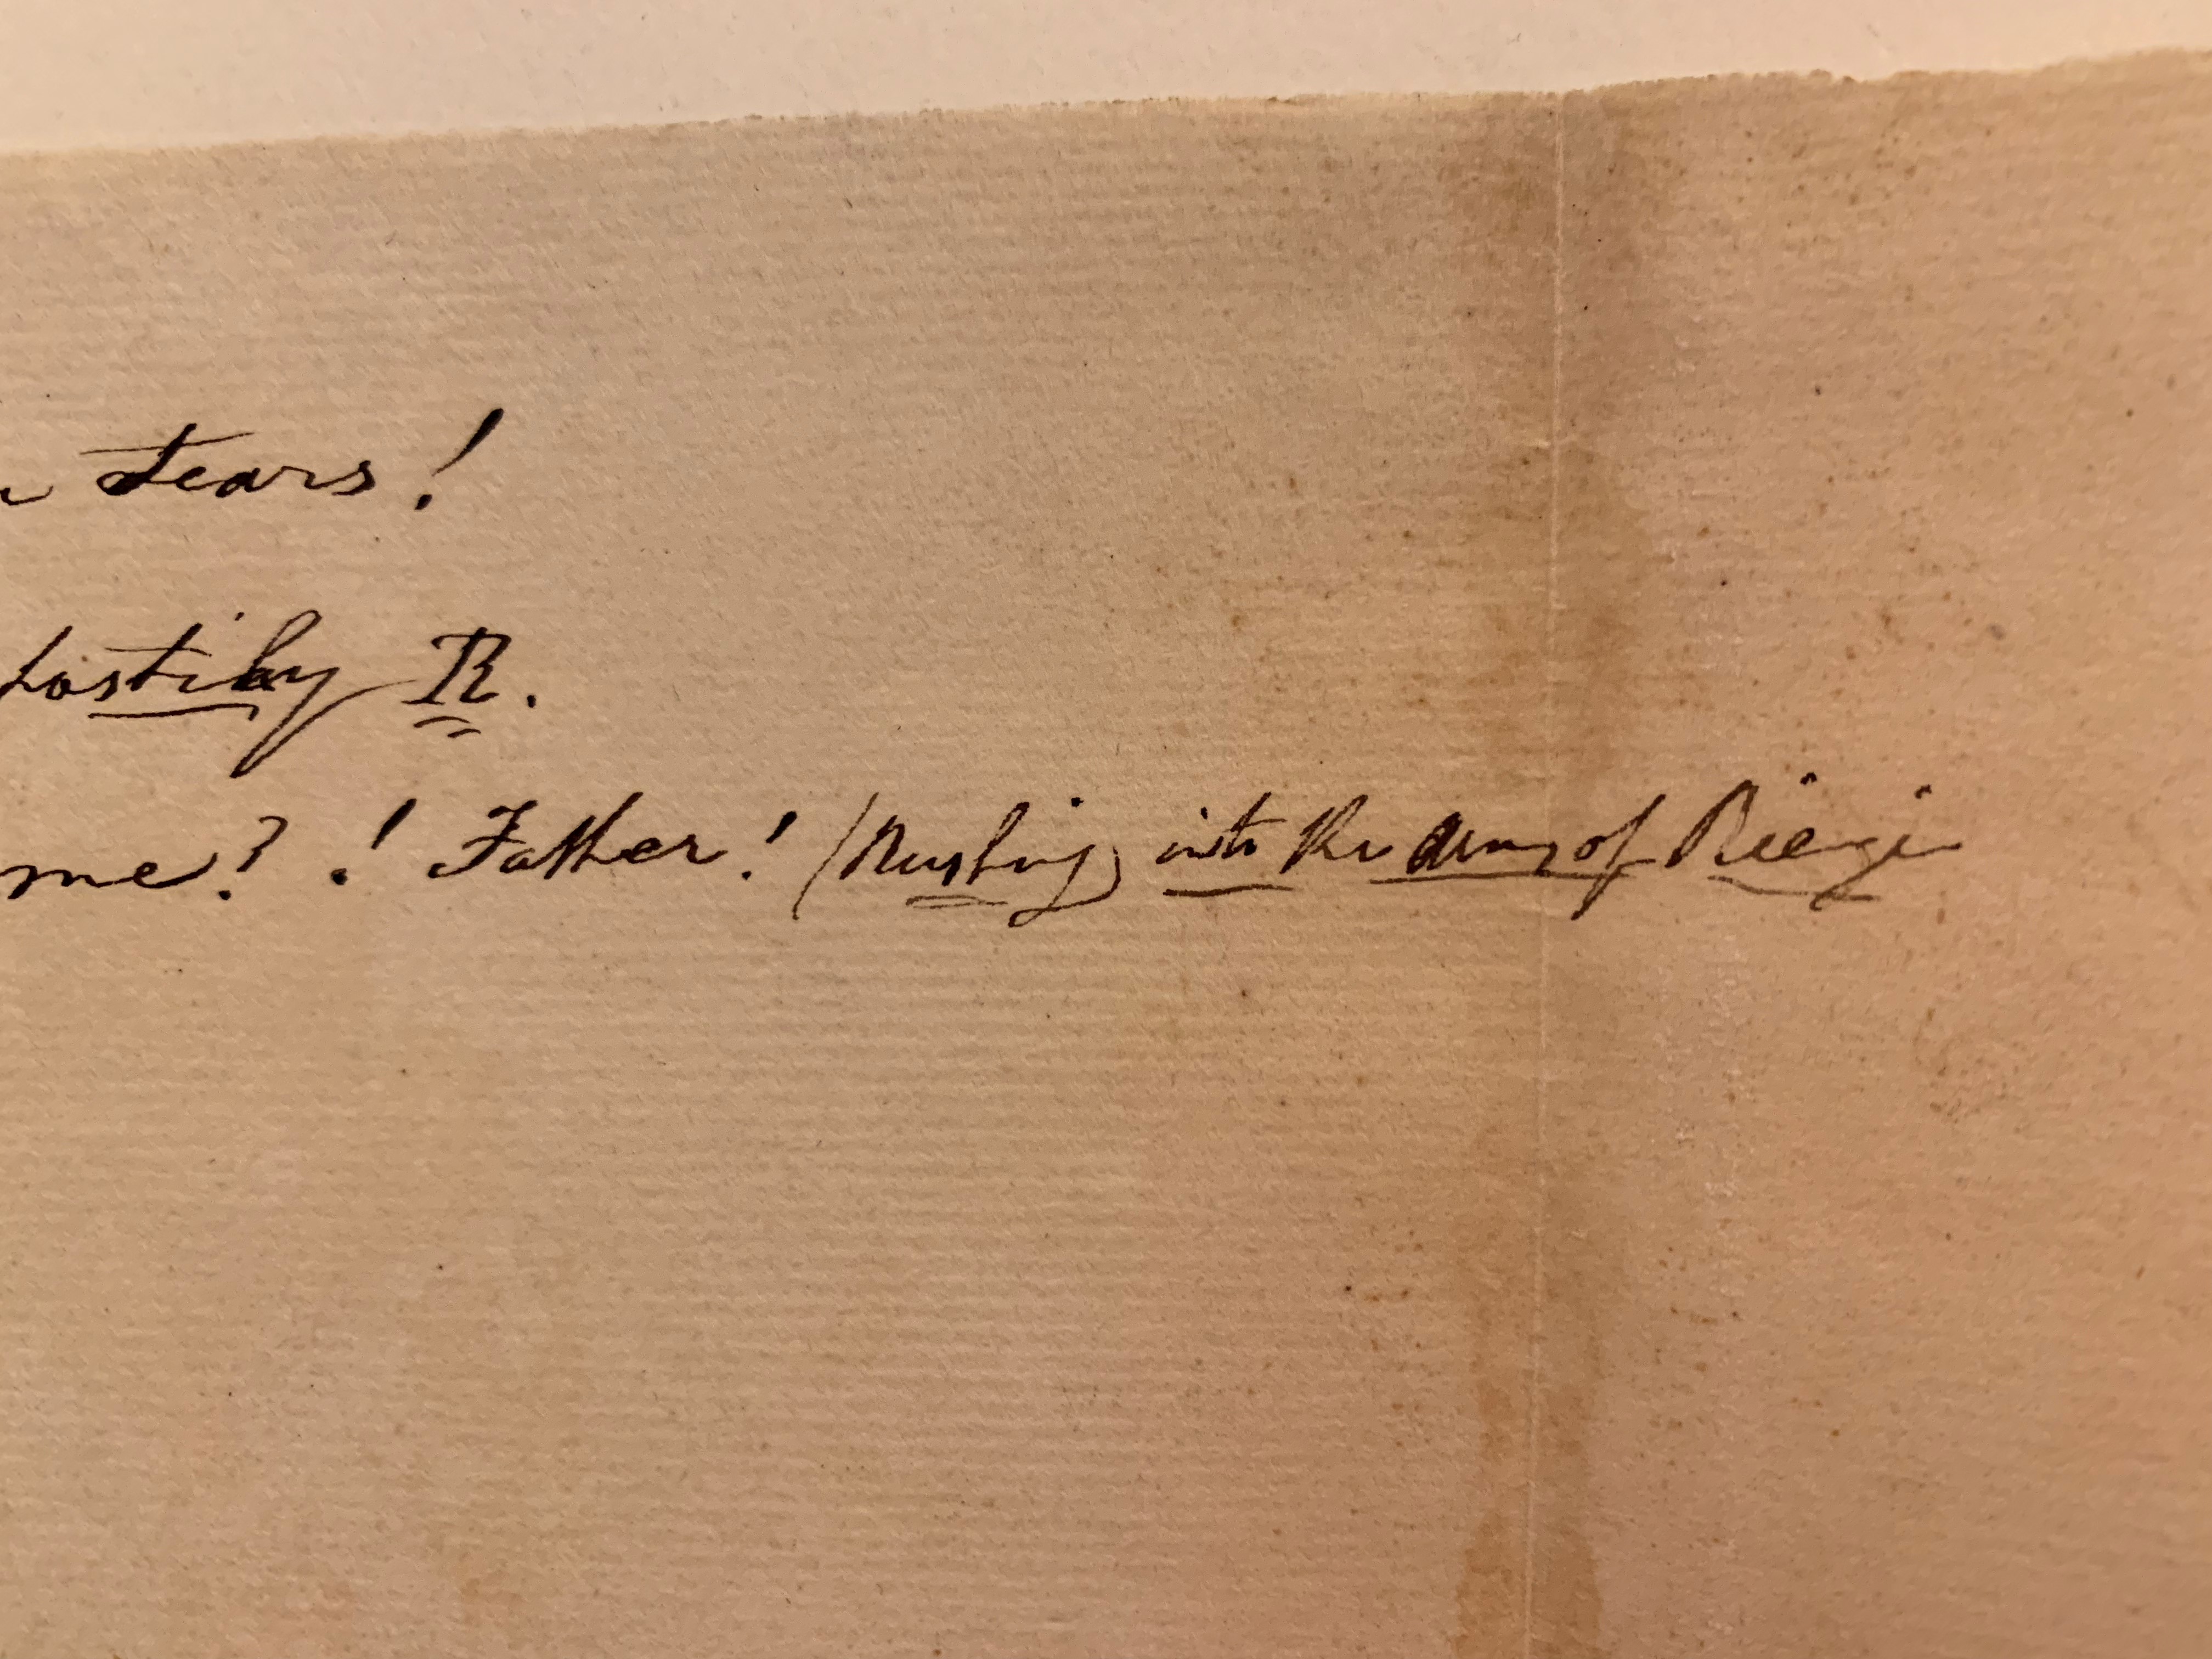 tears!
hastily R.
me?! Father! (Rushing into the arms of Rienzi